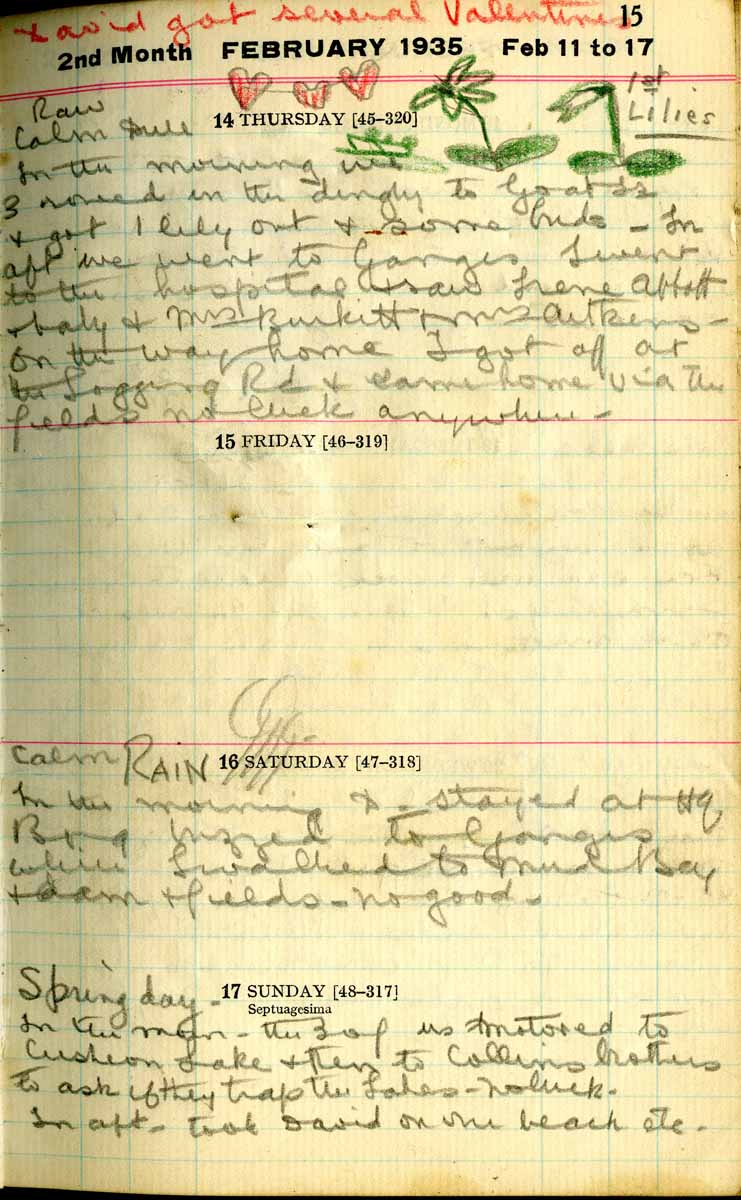 David got several Valentines
15
2nd Month FEBRUARY 1935 Feb 11 to 17
1st
Lilies
Raw
Calm Dull
14 THURSDAY [45–320]
In the morning we
3 rowed in the dinghy to Goat Is
& got 1 lily out & some buds – In
aft we went to Ganges I went
to the hospital & saw Irene Abbott
& baby & Mrs Burkitt & Mrs Aitkens –
On the way home I got off at
the Logging Rd & came home via the
fields no luck anywhere –
15 FRIDAY [46–319]
Calm RAIN
16 SATURDAY [47–318]
In the morning D. stayed at Hq
buzzed to Ganges
while I walked to Mud Bay
& dam & fields – no good –
Spring day –
17 SUNDAY [48–317]
Septuagesima
In the morn – the 3 of us motored to
Cusheon Lake & then to Collins brothers
to ask if they trap the Lakes – no luck.
In aft – took David on the beach etc –